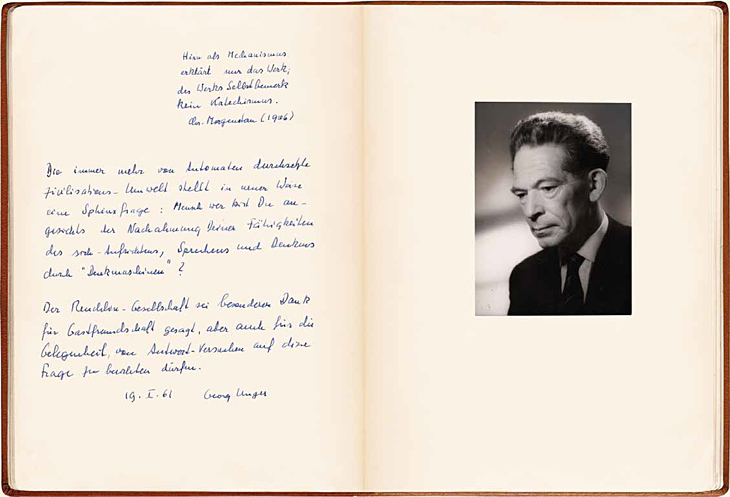 Hirn als Mechanismus
erklärt nur das Werk;
des Werks Selbstbemerk
kein Katechismus.
Chr. Morgenstern (1906)
Die immer mehr von Automaten durchsetzte
Zivilisations-Umwelt stellt in neuer Weise
eine Sphinxfrage: Mensch wer bist Du an-
gesichts der Nachahmung Deiner Fähigkeiten
des sich-Aufrichtens, Sprechens und Denkens
durch "Denkmaschinen"?
Der Rencklon-Gesellschaft sei besonderer Dank
für Gastfreundschaft gesagt, aber auch für die
Gelegenheit, von Antwort-Versuchen auf diese
Frage zu berichten dürfen.
19. I. 61 Georg Unger